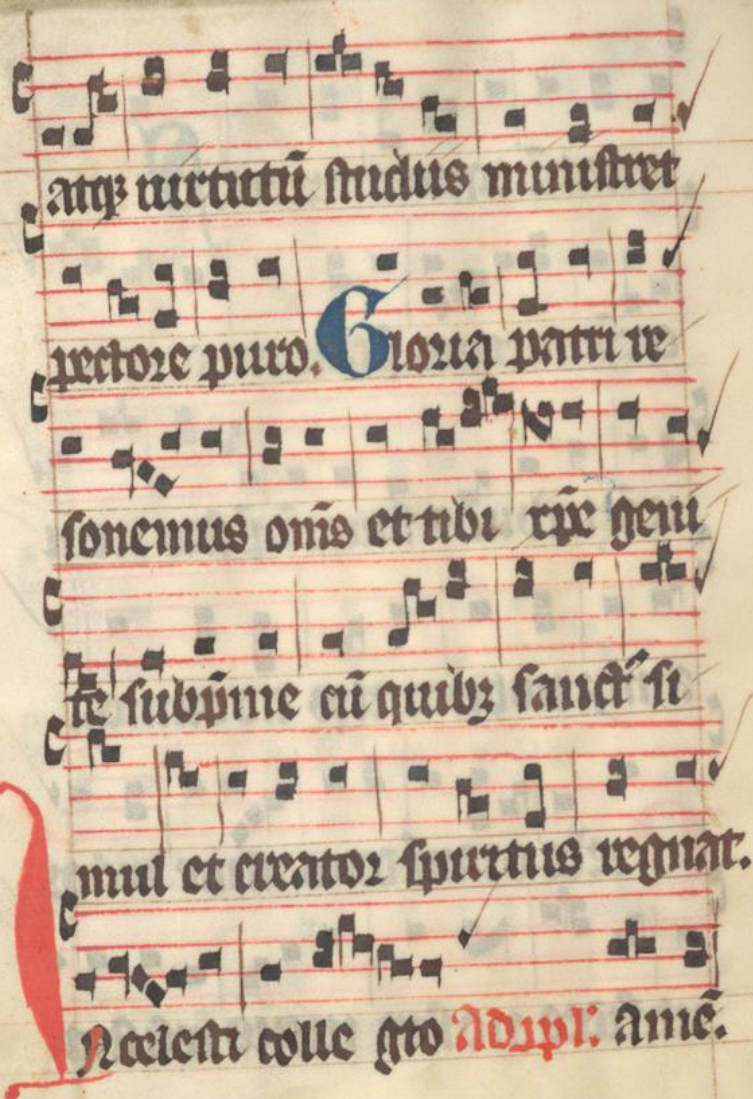 atqꝫ uirtutū studiis ministret
pectore puro. Gloria patri re
sonemus om̄s et tibi xp̄e geni
te subp̄me cū quibꝫ sanct᷒ si
mul et creator spiritus regnat.
In celesti colle gio Ad xpl: amē.